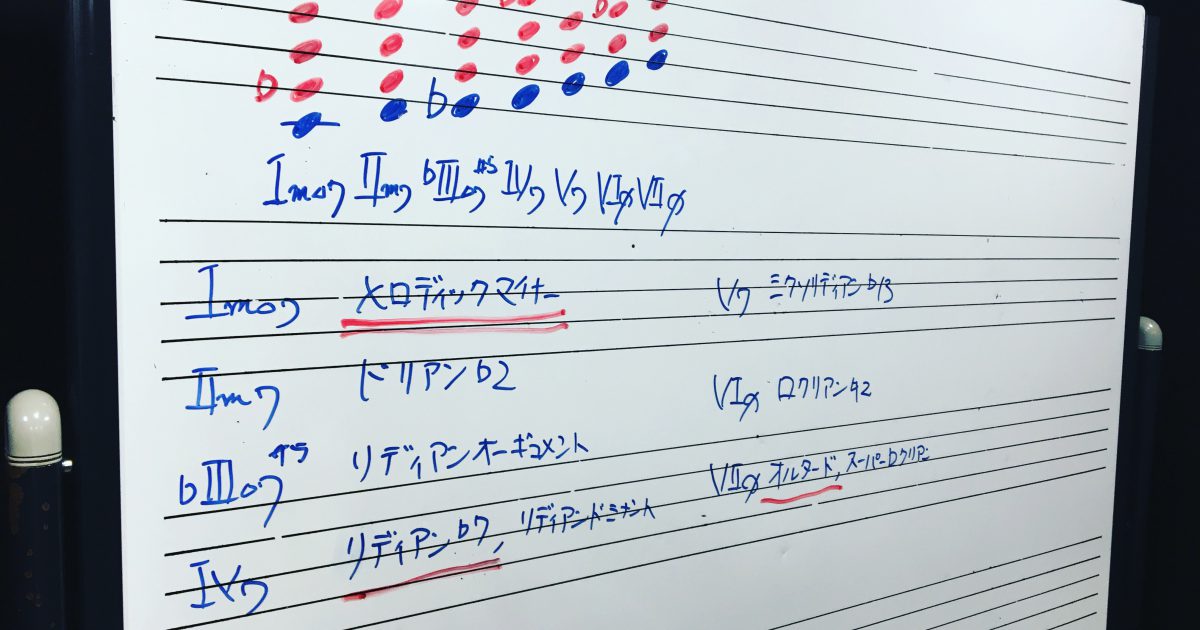 b b
b
b
Imo7 IIm7 bIIIo7#5 IV7 V7 VIø VIIø
Imo7 メロディックマイナー
IIm7 ドリアンb2
bIIIo7#5 リディアンオーギュメント
IV7 リディアンb7, リディアンドミナント
V7 ミクソリディアンb13
VIø ロクリアン♮2
VIIø オルタード, スーパーロクリアン